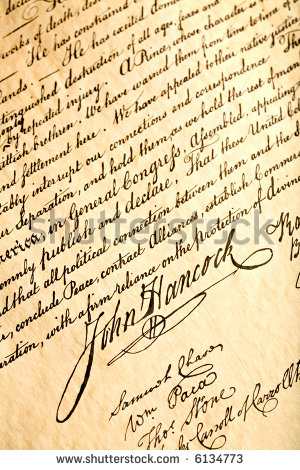 works of death, desolation
He has constrained
He has excited dome
lands.
distinguished destruction of all ages, sexes an
by repeated injury. A Prince, whose character
British brethren. We have warned them from time to time of
and settlement here. We have appealed to their native justice
itably interrupt our connections and correspondence. Th
our separation, and hold them, as we hold the rest of man
erica, in General Congress, Assembled, appealing
emnly publish and declare, That these United Co
d that all political connection between them and the
r, conclude Peace, contract Alliances, establish Commerc
eration, with a firm reliance on the protection of divin
John Hancock
Samuel Chase
Wm Paca
Thos Stone
Carroll of Carrollt
shutterstock
www.shutterstock.com · 6134773